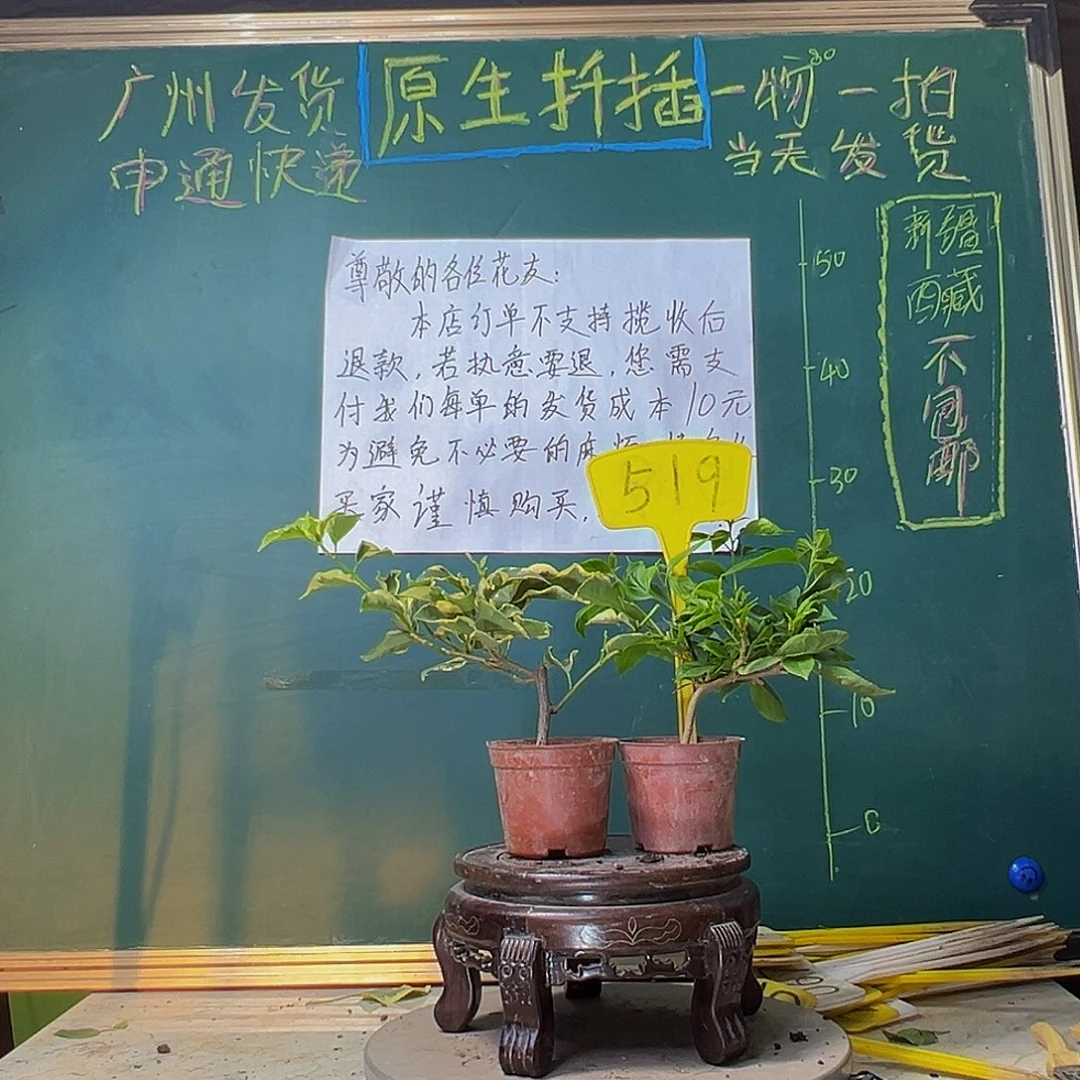 广州发货
原生扦插
一物一拍
申通快递
当天发货
尊敬的各位花友:
本店订单不支持揽收后
退款,若执意要退,您需支
付我们每单的发货成本10元
为避免不必要的麻烦
买家谨慎购买.
519
新疆
西藏
不
包
邮
50
40
30
20
10
0